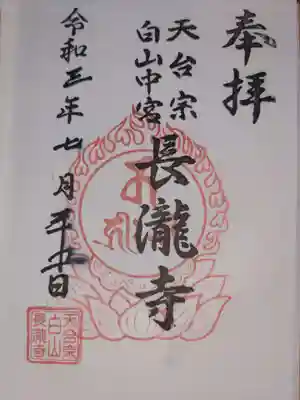 奉拝
天台宗
白山中宮
長瀧寺
令和三年七月廿五日
天台宗
白山
長瀧寺